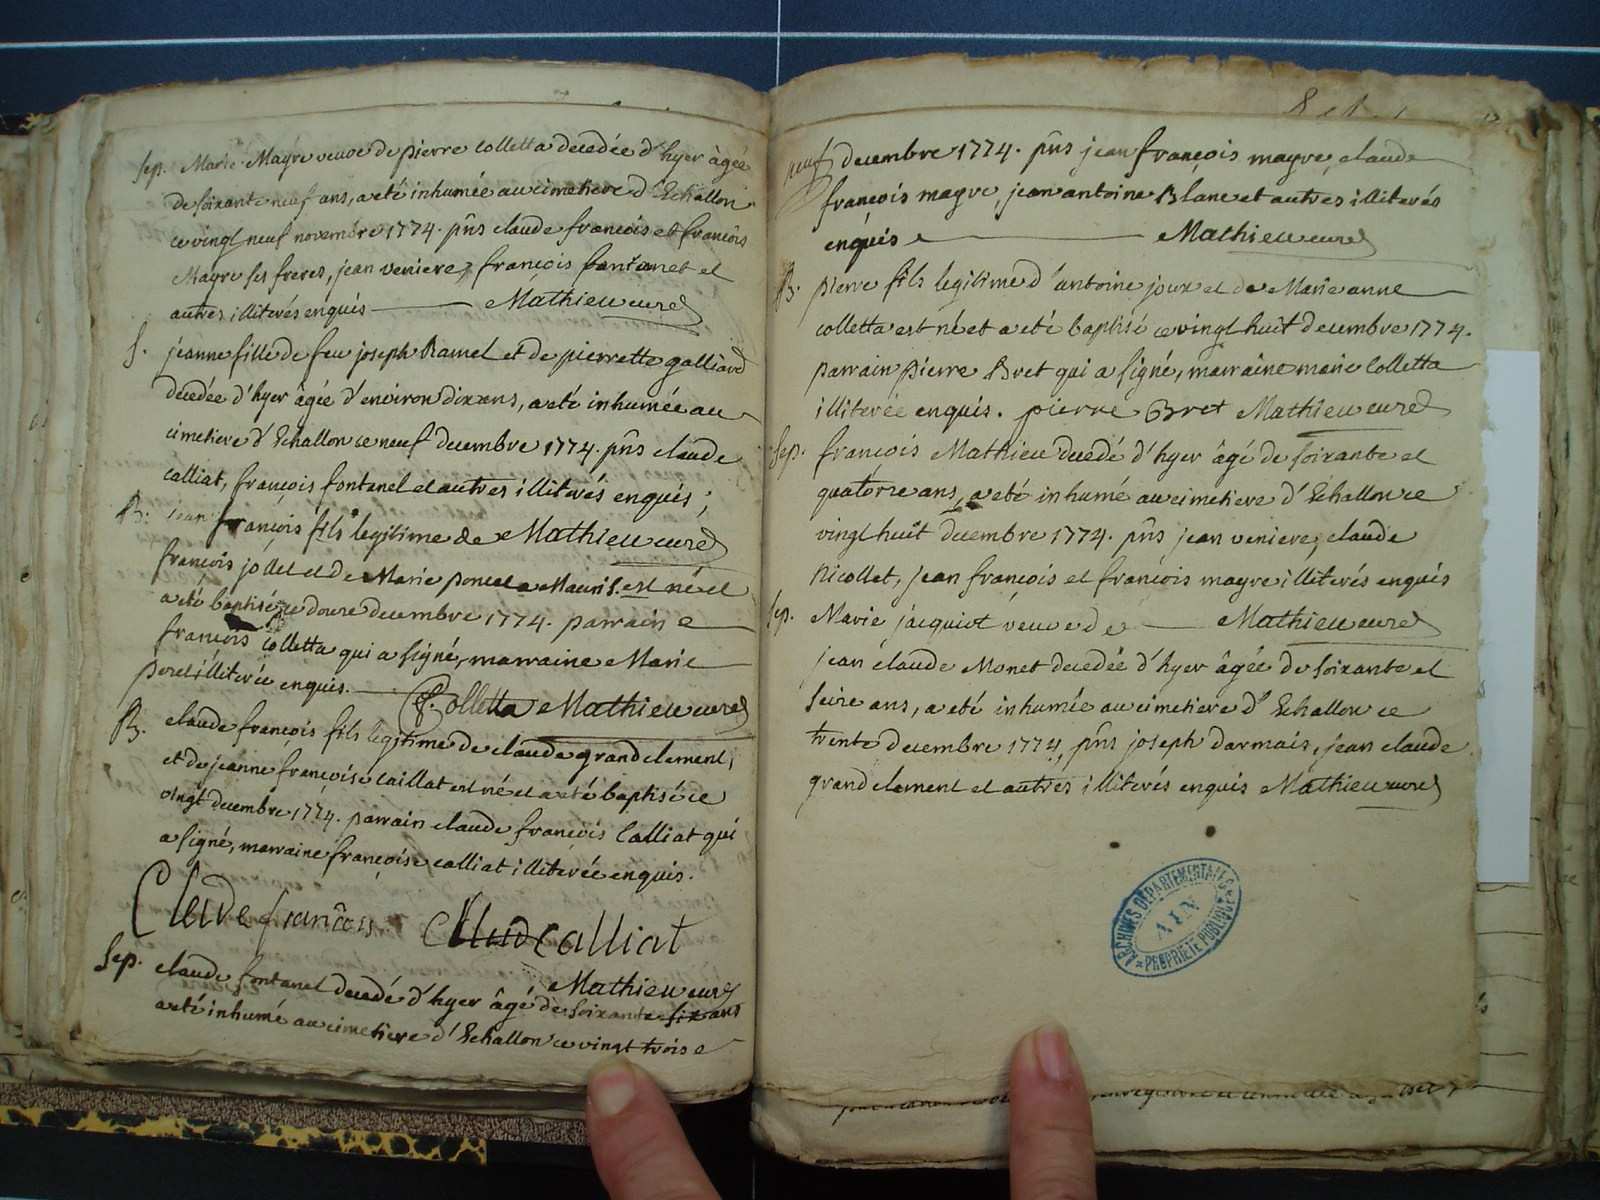 Sep. Marie Mayre veuve de pierre colletta decedée d'hyer âgée
de soixante neuf ans, a eté inhumée au cimetiere d'Echallon
ce vingt neuf novembre 1774. pñs claude francois et francois
Mayre ses freres, jean veniere, françois fontanet et
autres illiterés enquis Mathieu curé
S. jeanne fille de feu joseph Ramel et de pierrette galliard
decédée d'hyer âgée d'environ dix ans, a eté inhumée au
cimetiere d'Echallon ce neuf decembre 1774. pñs claude
calliat, françois fontanel et autres illiterés enquis,
B. jean françois fils legitime de Mathieu curé
françois jollet et de Marie poncet est né et
a eté baptisé ce douze decembre 1774. parrain
francois colletta qui a signé, marraine Marie
illiterée enquis. f. Colletta Mathieu curé
B. claude françois fils legitime de claude grandclement,
et de jeanne françoise caillat est né et a eté baptisé ce
vingt decembre 1774. parrain claude françois Calliat qui
a signé, marraine françoise calliat illiterée enquis.
Claude françois calliat
Mathieu curé
Sep. claude fontanel decedé d'hyer âgé de soixante six ans
a eté inhumé au cimetiere d'Echallon ce vingt trois
neuf decembre 1774. pñs jean françois mayre, claude
françois mayre, jean antoine Blanc et autres illiterés
enquis Mathieu curé
B. pierre fils legitime d'antoine joux et de Marie anne
colletta est né et a eté baptisé ce vingt huit decembre 1774.
parrain pierre Bret qui a signé, marraine marie Colletta
illiterée enquis. pierre Bret Mathieu curé
Sep. françois Mathieu decedé d'hyer âgé de soixante et
quatorze ans, a eté inhumé au cimetiere d'Echallon ce
vingt huit decembre 1774. pñs jean veniere, claude
Nicollet, jean françois et françois mayre illiterés enquis
Sep. Marie jacquiot veuve de Mathieu curé
jean claude Monet decedée d'hyer âgée de soixante et
seize ans, a eté inhumée au cimetiere d'Echallon ce
trente decembre 1774, pñs joseph darmais, jean claude
grand clement et autres illiterés enquis Mathieu curé
ARCHIVES DÉPARTEMENTALES
AIN
PROPRIÉTÉ PUBLIQUE